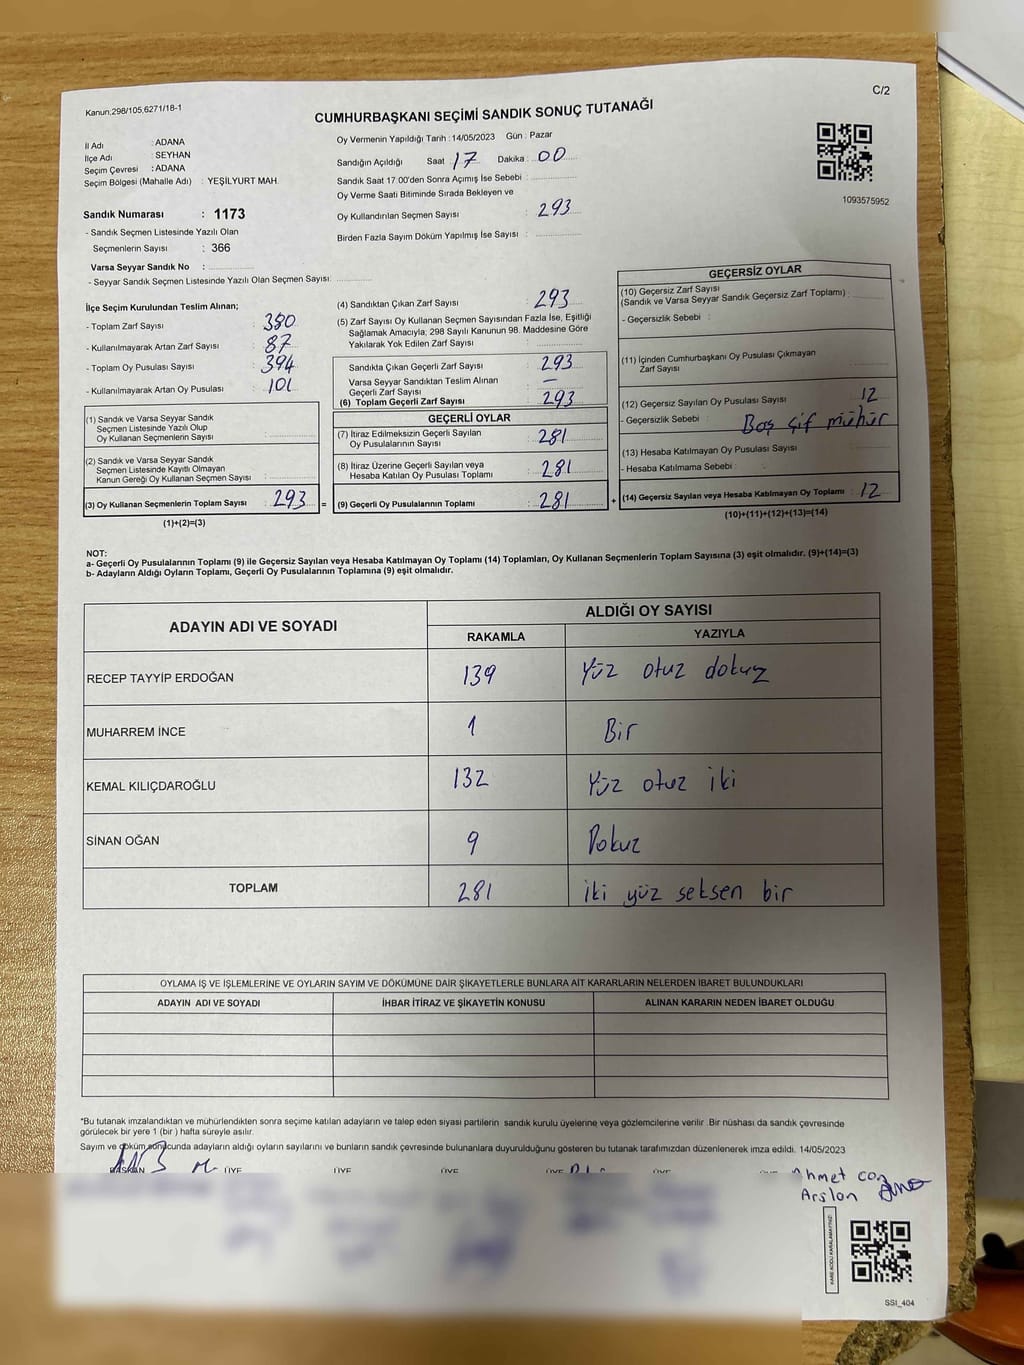 Kanun:298/105,6271/18-1
C/2
CUMHURBAŞKANI SEÇİMİ SANDIK SONUÇ TUTANAĞI
İl Adı : ADANA
İlçe Adı : SEYHAN
Seçim Çevresi : ADANA
Seçim Bölgesi (Mahalle Adı) : YEŞİLYURT MAH.
Sandık Numarası : 1173
- Sandık Seçmen Listesinde Yazılı Olan
Seçmenlerin Sayısı : 366
Varsa Seyyar Sandık No :
- Seyyar Sandık Seçmen Listesinde Yazılı Olan Seçmen Sayısı:
Oy Vermenin Yapıldığı Tarih : 14/05/2023 Gün : Pazar
Sandığın Açıldığı Saat : 17 Dakika : 00
Sandık Saat 17.00'den Sonra Açımış İse Sebebi :
Oy Verme Saati Bitiminde Sırada Bekleyen ve
Oy Kullandırılan Seçmen Sayısı : 293
Birden Fazla Sayım Döküm Yapılmış İse Sayısı :
1093575952
İlçe Seçim Kurulundan Teslim Alınan;
- Toplam Zarf Sayısı : 380
- Kullanılmayarak Artan Zarf Sayısı : 87
- Toplam Oy Pusulası Sayısı : 394
- Kullanılmayarak Artan Oy Pusulası : 101
(1) Sandık ve Varsa Seyyar Sandık
Seçmen Listesinde Yazılı Olup
Oy Kullanan Seçmenlerin Sayısı :
(2) Sandık ve Varsa Seyyar Sandık
Seçmen Listesinde Kayıtlı Olmayan
Kanun Gereği Oy Kullanan Seçmen Sayısı :
(3) Oy Kullanan Seçmenlerin Toplam Sayısı : 293 =
(1)+(2)=(3)
(4) Sandıktan Çıkan Zarf Sayısı : 293
(5) Zarf Sayısı Oy Kullanan Seçmen Sayısından Fazla İse, Eşitliği
Sağlamak Amacıyla, 298 Sayılı Kanunun 98. Maddesine Göre
Yakılarak Yok Edilen Zarf Sayısı :
Sandıkta Çıkan Geçerli Zarf Sayısı : 293
Varsa Seyyar Sandıktan Teslim Alınan
Geçerli Zarf Sayısı : –
(6) Toplam Geçerli Zarf Sayısı : 293
GEÇERLİ OYLAR
(7) İtiraz Edilmeksizin Geçerli Sayılan
Oy Pusulalarının Sayısı : 281
(8) İtiraz Üzerine Geçerli Sayılan veya
Hesaba Katılan Oy Pusulası Toplamı : 281
(9) Geçerli Oy Pusulalarının Toplamı : 281 +
GEÇERSİZ OYLAR
(10) Geçersiz Zarf Sayısı
(Sandık ve Varsa Seyyar Sandık Geçersiz Zarf Toplamı) :
- Geçersizlik Sebebi :
(11) İçinden Cumhurbaşkanı Oy Pusulası Çıkmayan
Zarf Sayısı :
(12) Geçersiz Sayılan Oy Pusulası Sayısı : 12
- Geçersizlik Sebebi : Boş çif mühür
(13) Hesaba Katılmayan Oy Pusulası Sayısı :
- Hesaba Katılmama Sebebi :
(14) Geçersiz Sayılan veya Hesaba Katılmayan Oy Toplamı : 12
(10)+(11)+(12)+(13)=(14)
NOT:
a- Geçerli Oy Pusulalarının Toplamı (9) ile Geçersiz Sayılan veya Hesaba Katılmayan Oy Toplamı (14) Toplamları, Oy Kullanan Seçmenlerin Toplam Sayısına (3) eşit olmalıdır. (9)+(14)=(3)
b- Adayların Aldığı Oyların Toplamı, Geçerli Oy Pusulalarının Toplamına (9) eşit olmalıdır.
ADAYIN ADI VE SOYADI
ALDIĞI OY SAYISI
RAKAMLA YAZIYLA
RECEP TAYYİP ERDOĞAN 139 Yüz otuz dokuz
MUHARREM İNCE 1 Bir
KEMAL KILIÇDAROĞLU 132 Yüz otuz iki
SİNAN OĞAN 9 Dokuz
TOPLAM 281 iki yüz seksen bir
OYLAMA İŞ VE İŞLEMLERİNE VE OYLARIN SAYIM VE DÖKÜMÜNE DAİR ŞİKAYETLERLE BUNLARA AİT KARARLARIN NELERDEN İBARET BULUNDUKLARI
ADAYIN ADI VE SOYADI İHBAR İTİRAZ VE ŞİKAYETİN KONUSU ALINAN KARARIN NEDEN İBARET OLDUĞU
*Bu tutanak imzalandıktan ve mühürlendikten sonra seçime katılan adayların ve talep eden siyasi partilerin sandık kurulu üyelerine veya gözlemcilerine verilir. Bir nüshası da sandık çevresinde
görülecek bir yere 1 (bir ) hafta süreyle asılır.
Sayım ve döküm sonucunda adayların aldığı oyların sayılarını ve bunların sandık çevresinde bulunanlara duyurulduğunu gösteren bu tutanak tarafımızdan düzenlenerek imza edildi. 14/05/2023
BAŞKAN ÜYE ÜYE ÜYE ÜYE ÜYE
Ahmet
Arslan
KARE KODU KARALAMAYINIZ!
SSİ_404